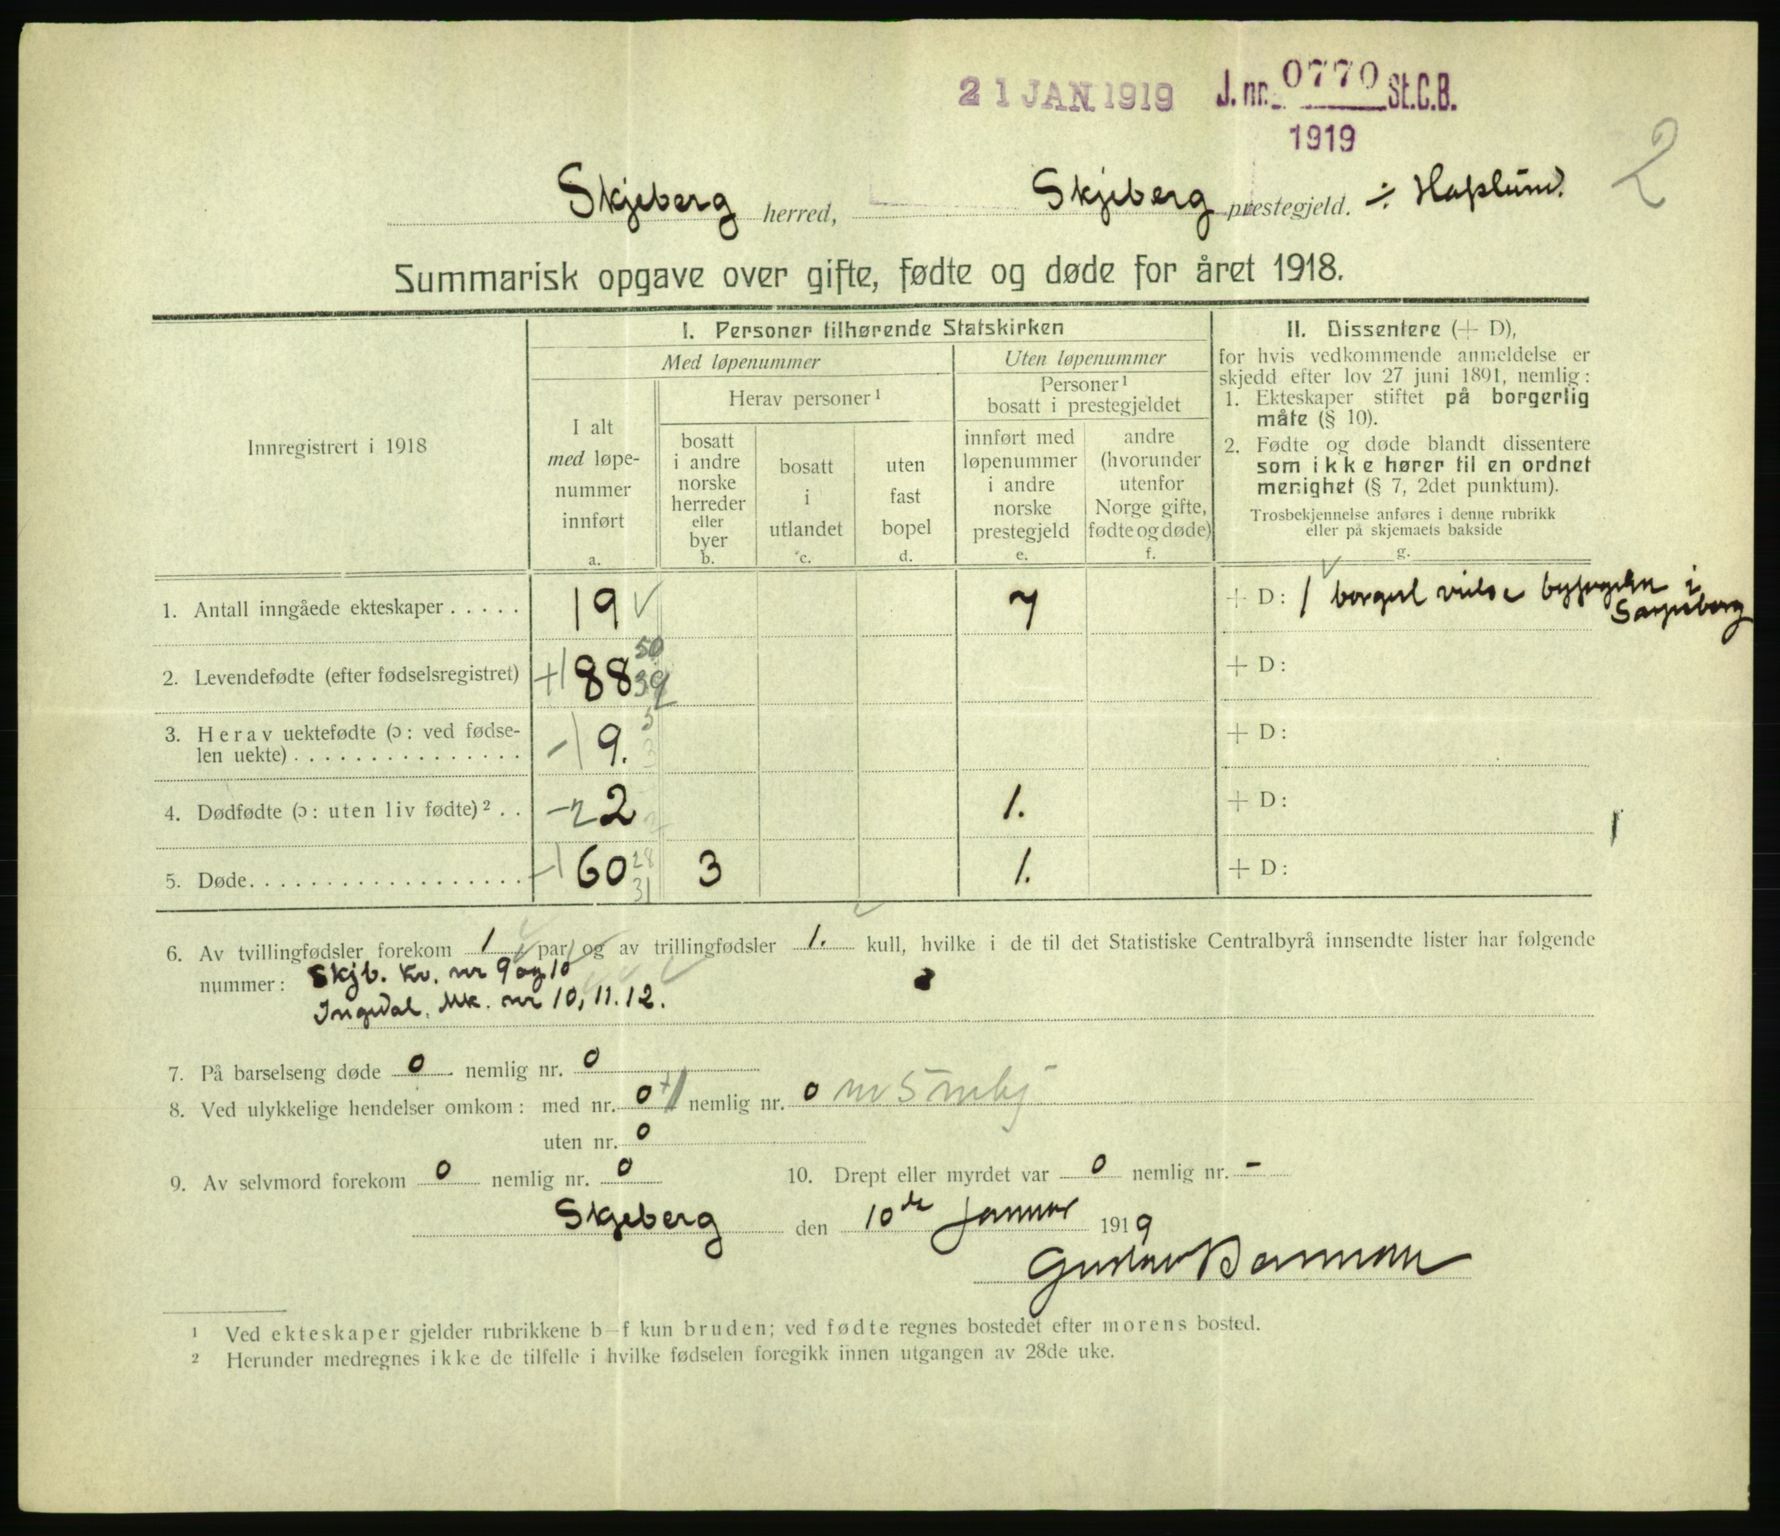 21 JAN. 1919 J. nr. 0770 St.C.B.
1919
2
Skjeberg herred, Skjeberg prestegjeld. ÷ Hafslund.
Summarisk opgave over gifte, fødte og døde for året 1918.
Innregistrert i 1918
I. Personer tilhørende Statskirken
Med løpenummer
Uten løpenummer
I alt
med løpe-
nummer
innført
a.
Herav personer ¹
bosatt
i andre
norske
herreder
eller
byer
b.
bosatt
i
utlandet
c.
uten
fast
bopel
d.
Personer ¹
bosatt i prestegjeldet
innført med
løpenummer
i andre
norske
prestegjeld
e.
andre
(hvorunder
utenfor
Norge gifte,
fødte og døde)
f.
II. Dissentere (+ D),
for hvis vedkommende anmeldelse er
skjedd efter lov 27 juni 1891, nemlig:
1. Ekteskaper stiftet på borgerlig
måte (§ 10).
2. Fødte og døde blandt dissentere
som ikke hører til en ordnet
menighet (§ 7, 2det punktum).
Trosbekjennelse anføres i denne rubrikk
eller på skjemaets bakside
g.
1. Antall inngåede ekteskaper . . . . . 19 √ 7 + D: 1 borgerl vielse byfogden i
Sarpsborg
2. Levendefødte (efter fødselsregistret) +1 88 50 39 + D:
3. Herav uektefødte (ɔ: ved fødse-
len uekte) . . . . . . . . . . . . . . . -1 9. 5 3 + D:
4. Dødfødte (ɔ: uten liv fødte) ² . . -2 2 1. + D:
5. Døde. . . . . . . . . . . . . . . . . . . -1 60 28 31 3 1. + D:
6. Av tvillingfødsler forekom 1 par og av trillingfødsler 1. kull, hvilke i de til det Statistiske Centralbyrå innsendte lister har følgende
nummer: Skjb. Kv. nr 9 og 10
Ingedal. Mk. nr 10, 11. 12.
7. På barselseng døde 0 nemlig nr. 0
8. Ved ulykkelige hendelser omkom: med nr. 0 +1 nemlig nr. 0 nr 5
uten nr. 0
9. Av selvmord forekom 0 nemlig nr. 0 10. Drept eller myrdet var 0 nemlig nr. -
Skjeberg den 10de januar 1919
Gustav
¹ Ved ekteskaper gjelder rubrikkene b-f kun bruden; ved fødte regnes bostedet efter morens bosted.
² Herunder medregnes ikke de tilfelle i hvilke fødselen foregikk innen utgangen av 28de uke.